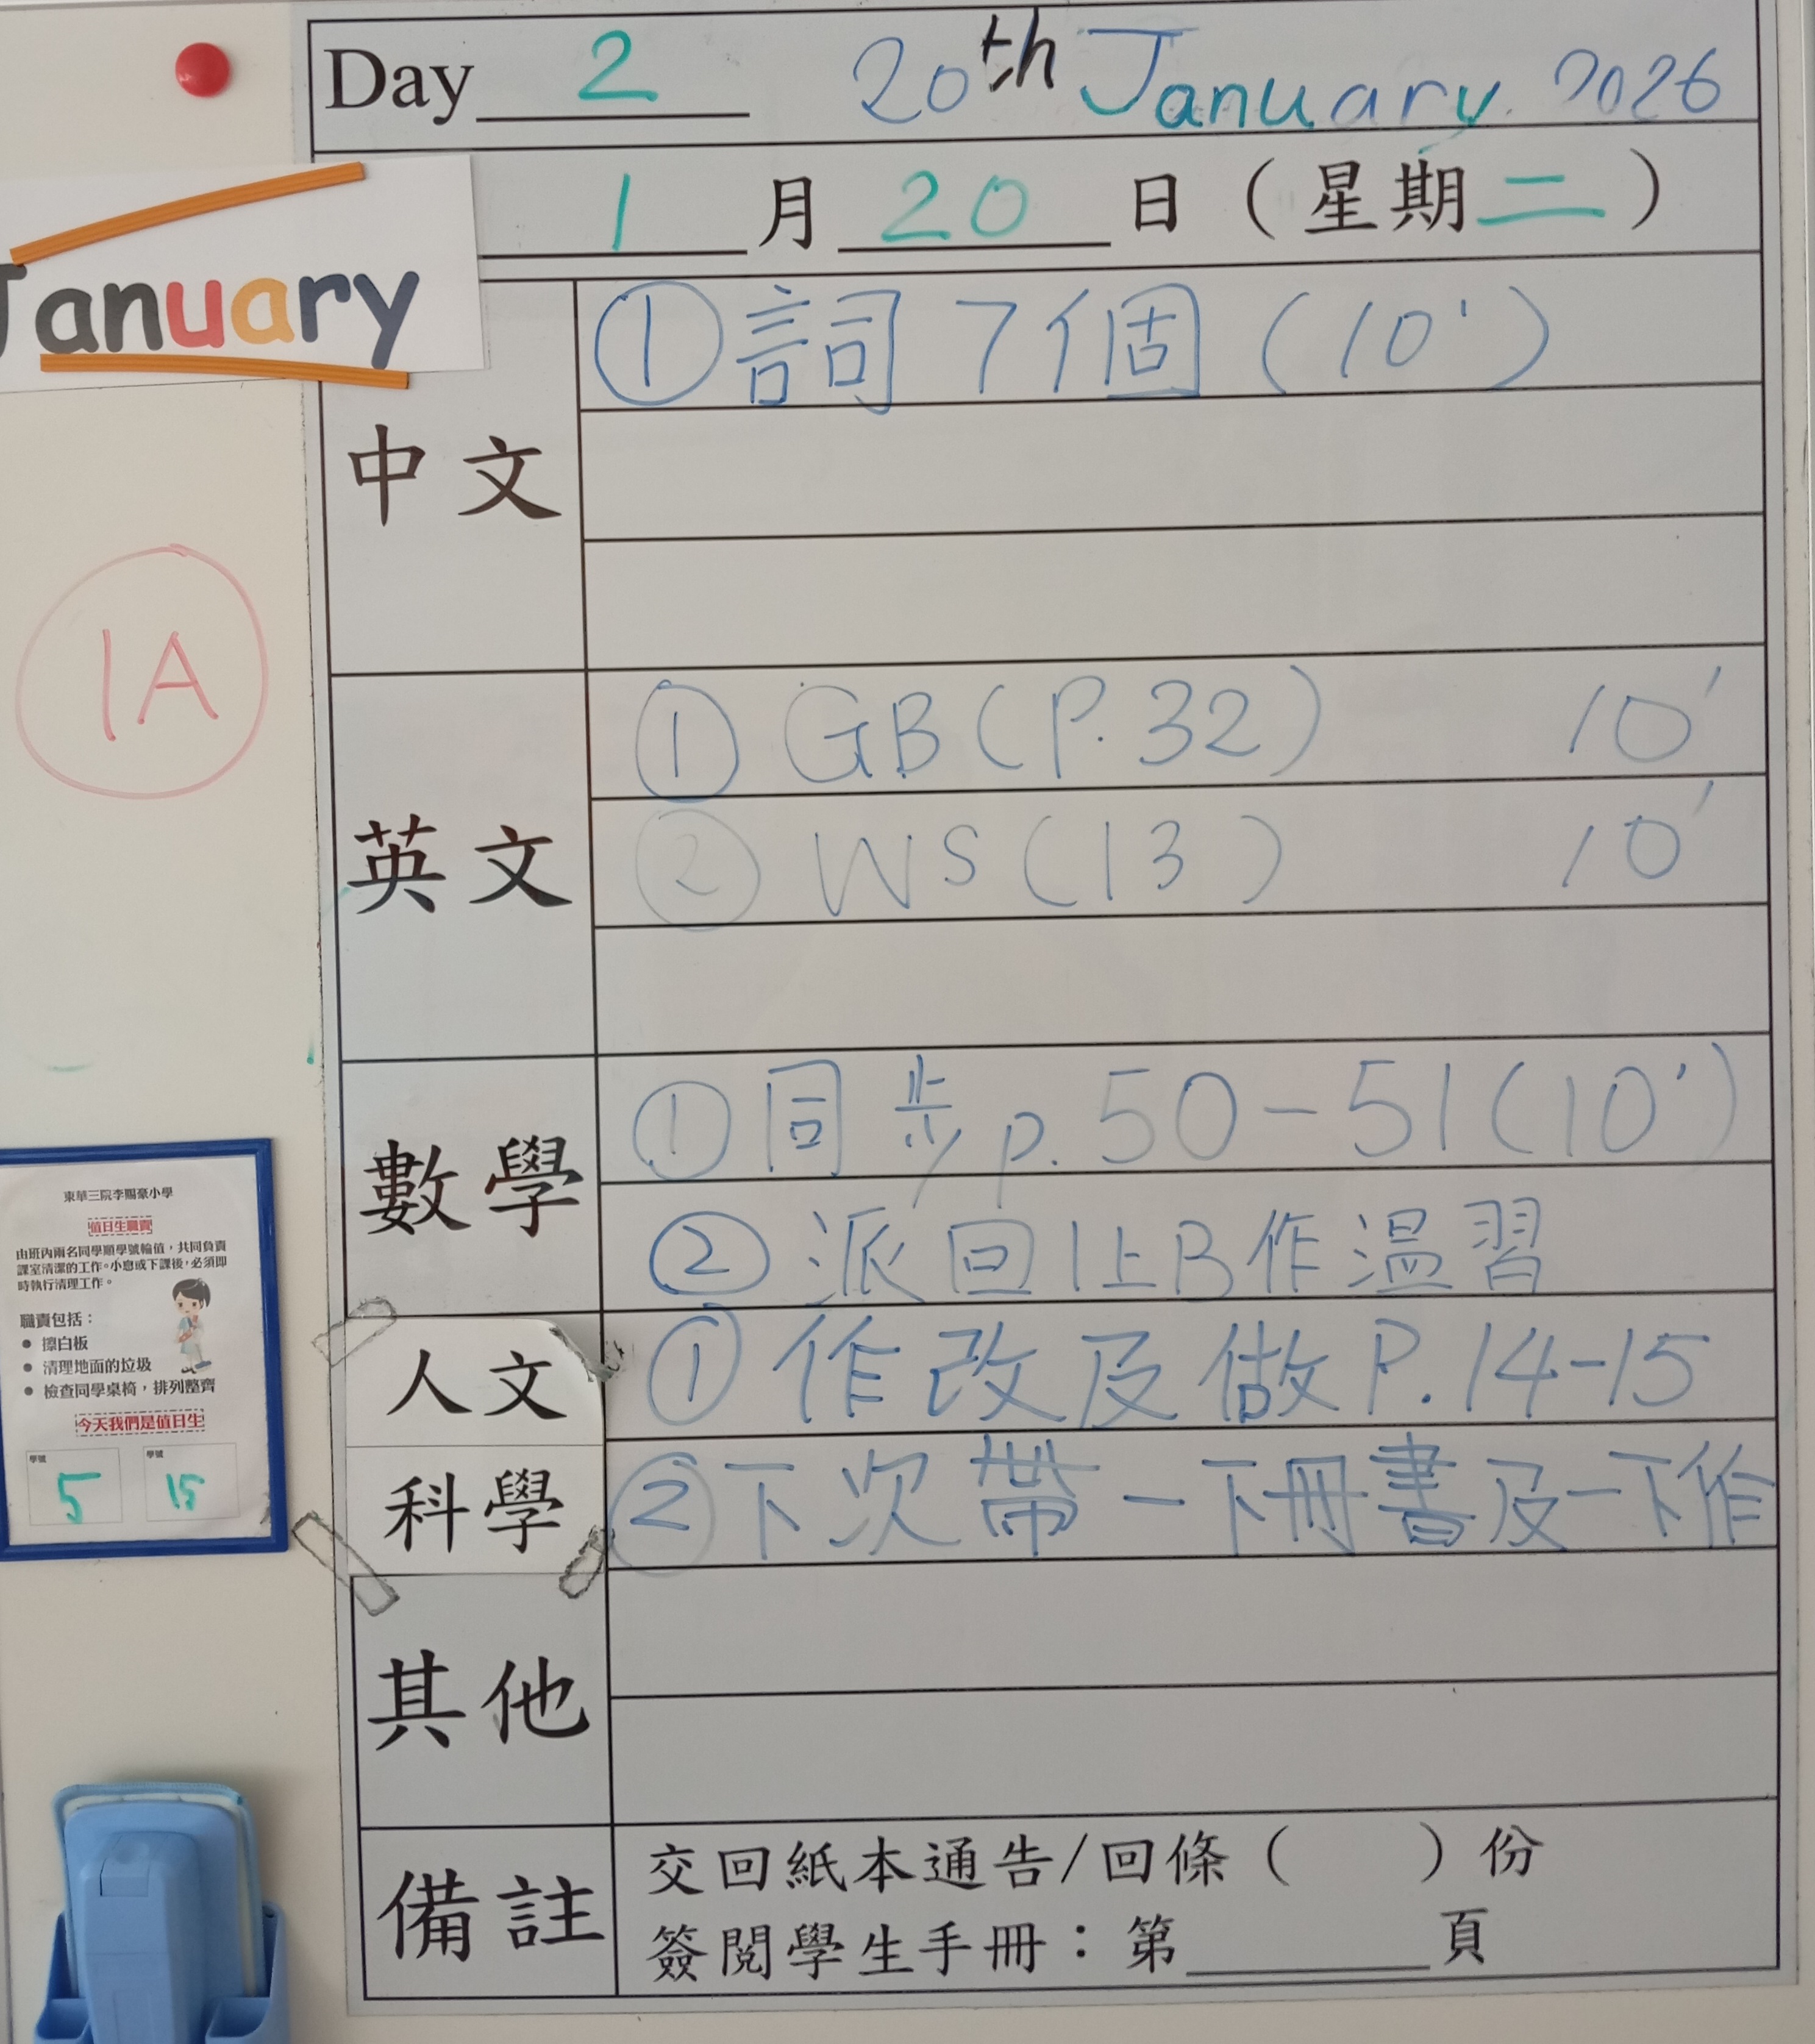 Day 2 20th January 2026
1月20日(星期二)
January
中文
①詞7個(10')
1A
英文
①GB(P.32) 10'
②WS(13) 10'
數學
①同步p.50-51(10')
②派回1上B作溫習
人文
①作改及做P.14-15
科學
②下次帶一下冊書及一下作
其他
備註
交回紙本通告/回條( )份
簽閱學生手冊:第____頁
東華三院李賜豪小學
值日生職責
由班內兩名同學順學號輪值,共同負責
課室清潔的工作。小息或下課後,必須即
時執行清理工作。
職責包括:
● 擦白板
● 清理地面的垃圾
● 檢查同學桌椅,排列整齊
今天我們是值日生
學號 學號
5 15